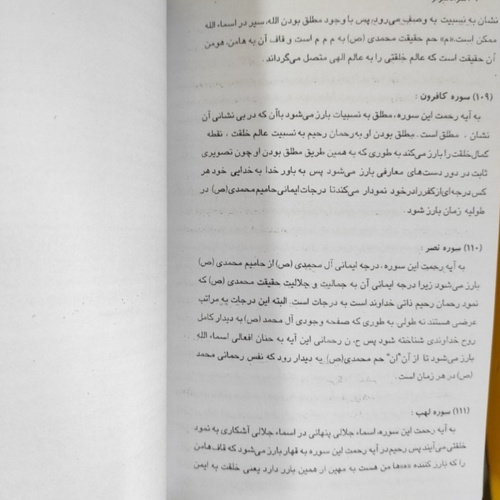 نشان به نسبیت به وصف می‌رود پس با وجود مطلق بودن الله، سیر در اسماء الله
ممکن است. «م» حم حقیقت محمدی (ص) به م م م است و قاف آن به هامن، هومن
آن حقیقت است که عالم خلقتی را به عالم الهی متصل می‌گرداند.
(۱۰۹) سوره کافرون :
به آیه رحمت این سوره، مطلق به نسبیات بارز می‌شود با آن که در بی نشانی آن
نشان ، مطلق است. مطلق بودن او به رحمان رحیم به نسبیت عالم خلقت ، نقطه
کمال خلقت را بارز می‌کند به طوری که به همین طریق مطلق بودن او چون تصویری
ثابت در دور دست‌های معارفی بارز می‌شود پس به باور خدا به خدایی خود هر
کس درجه‌ای از کفر را در خود نمودار می‌کند تا درجات ایمانی حامیم محمدی (ص) در
طولیه زمان بارز شود.
(۱۱۰) سوره نصر :
به آیه رحمت این سوره، درجه ایمانی آل محمدی (ص) از حامیم محمدی (ص)
بارز می‌شود زیرا درجه ایمانی آن به جمالیت و جلالیت حقیقت محمدی (ص) که
نمود رحمان رحیم ذاتی خداوند است به درجات است. البته این درجات به مراتب
عرضی هستند نه طولی به طوری که صفحه وجودی آل محمد (ص) به دیدار کامل
روح خداوندی شناخته شود پس ح، ن رحمانی این آیه به حنان افعالی اسماء الله
بارز می‌شود تا از آن "ان" حم محمدی (ص) به دیدار رود که نفس رحمانی محمد
(ص) در هر زمان است.
(۱۱۱) سوره لهب :
به آیه رحمت این سوره، اسماء جلالی پنهانی در اسماء جلالی آشکاری به نمود
خلقتی می‌آیند پس رحیم در آیه رحمت این سوره به قهار بارز می‌شود که قاف هامن
را که بارز کننده «ه» ها من هست به مهین از همین بارز دارد یعنی خلقت به ایمن